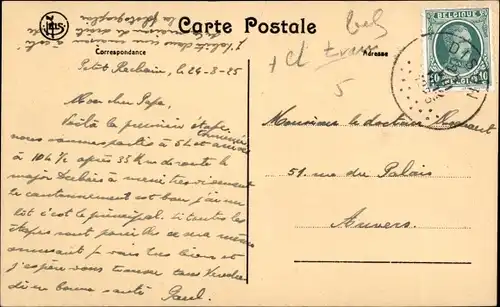 J'habite dans une maison à côté
de la maison du droite
la photographie
Carte Postale
Correspondance
Adresse
Bel
+ cl
5
BELGIQUE
Petit Rechain, le 24-8-25
Mon cher Papa,
Voilà la première étape terminée
nous sommes partis à 5h et arrivée
à 10h ½ après 33 Km de route le
major a mené très vivement
le cantonnement est bon j'ai un
lit c'est le principal. Si toutes les
étapes sont pareilles ce sera même
amusant je vais très bien et
j'espère vous trouver tous
en bonne santé Paul.
Monsieur le docteur
51. rue du Palais
Anvers.